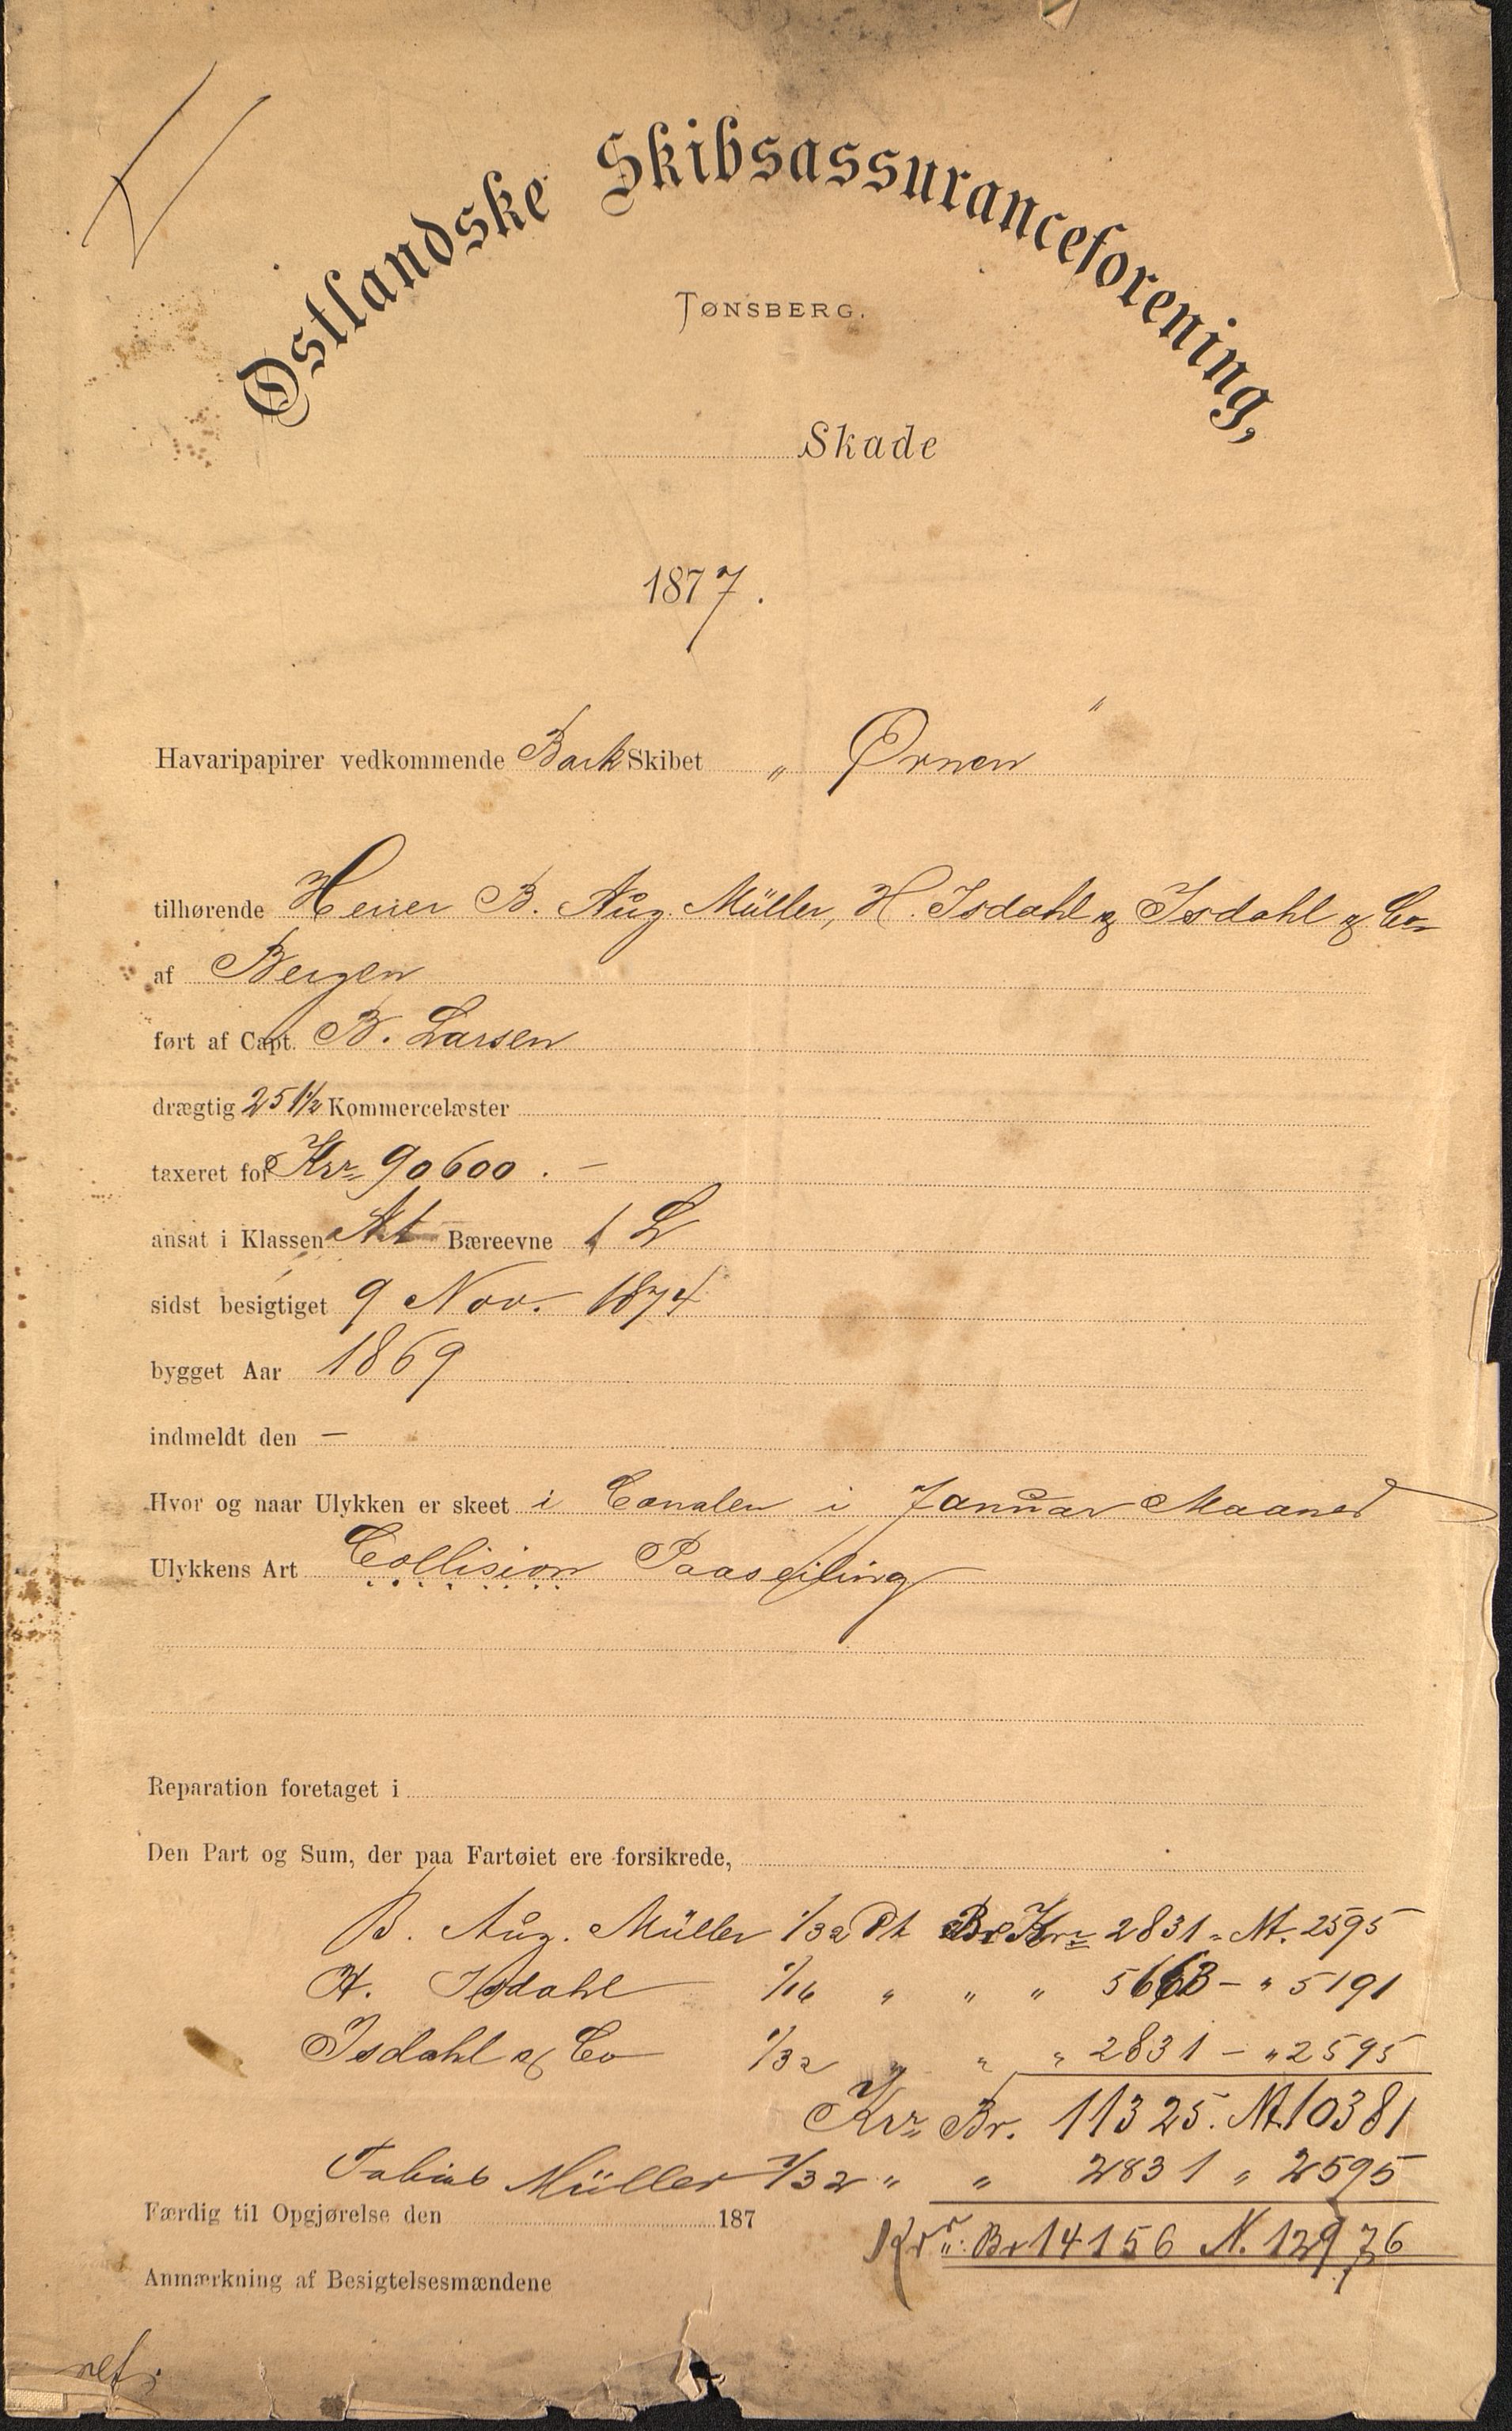 Østlandske Skibsassuranceforening,
TØNSBERG.
Skade
1877.
Havaripapirer vedkommende Bark Skibet „ Ørnen "
tilhørende Herrer B. Aug. Müller, H. Isdahl & Isdahl & Co
af Bergen
ført af Capt. B. Larsen
drægtig 251½ Kommercelæster
taxeret for Krr 90600 . —
ansat i Klassen A1 Bæreevne 1 L
sidst besigtiget 9 Nov. 1874
bygget Aar 1869
indmeldt den —
Hvor og naar Ulykken er skeet i Canalen i Januar Maaned
Ulykkens Art Collision Paaseiling
Reparation foretaget i
Den Part og Sum, der paa Fartøiet ere forsikrede,
B. Aug. Müller 1/32 Pt Br Krr 2831 „ Nt. 2595
H. Isdahl 1/16 „ „ „ 5663 — „ 5191
Isdahl & Co 1/32 „ „ „ 2831 — „ 2595
Krr Br. 11325. Nt. 10381
Tobias Müller 1/32 „ „ 2831 „ 2595
Færdig til Opgjørelse den 187
Krr: Br 14156 N. 12976
Anmærkning af Besigtelsesmændene